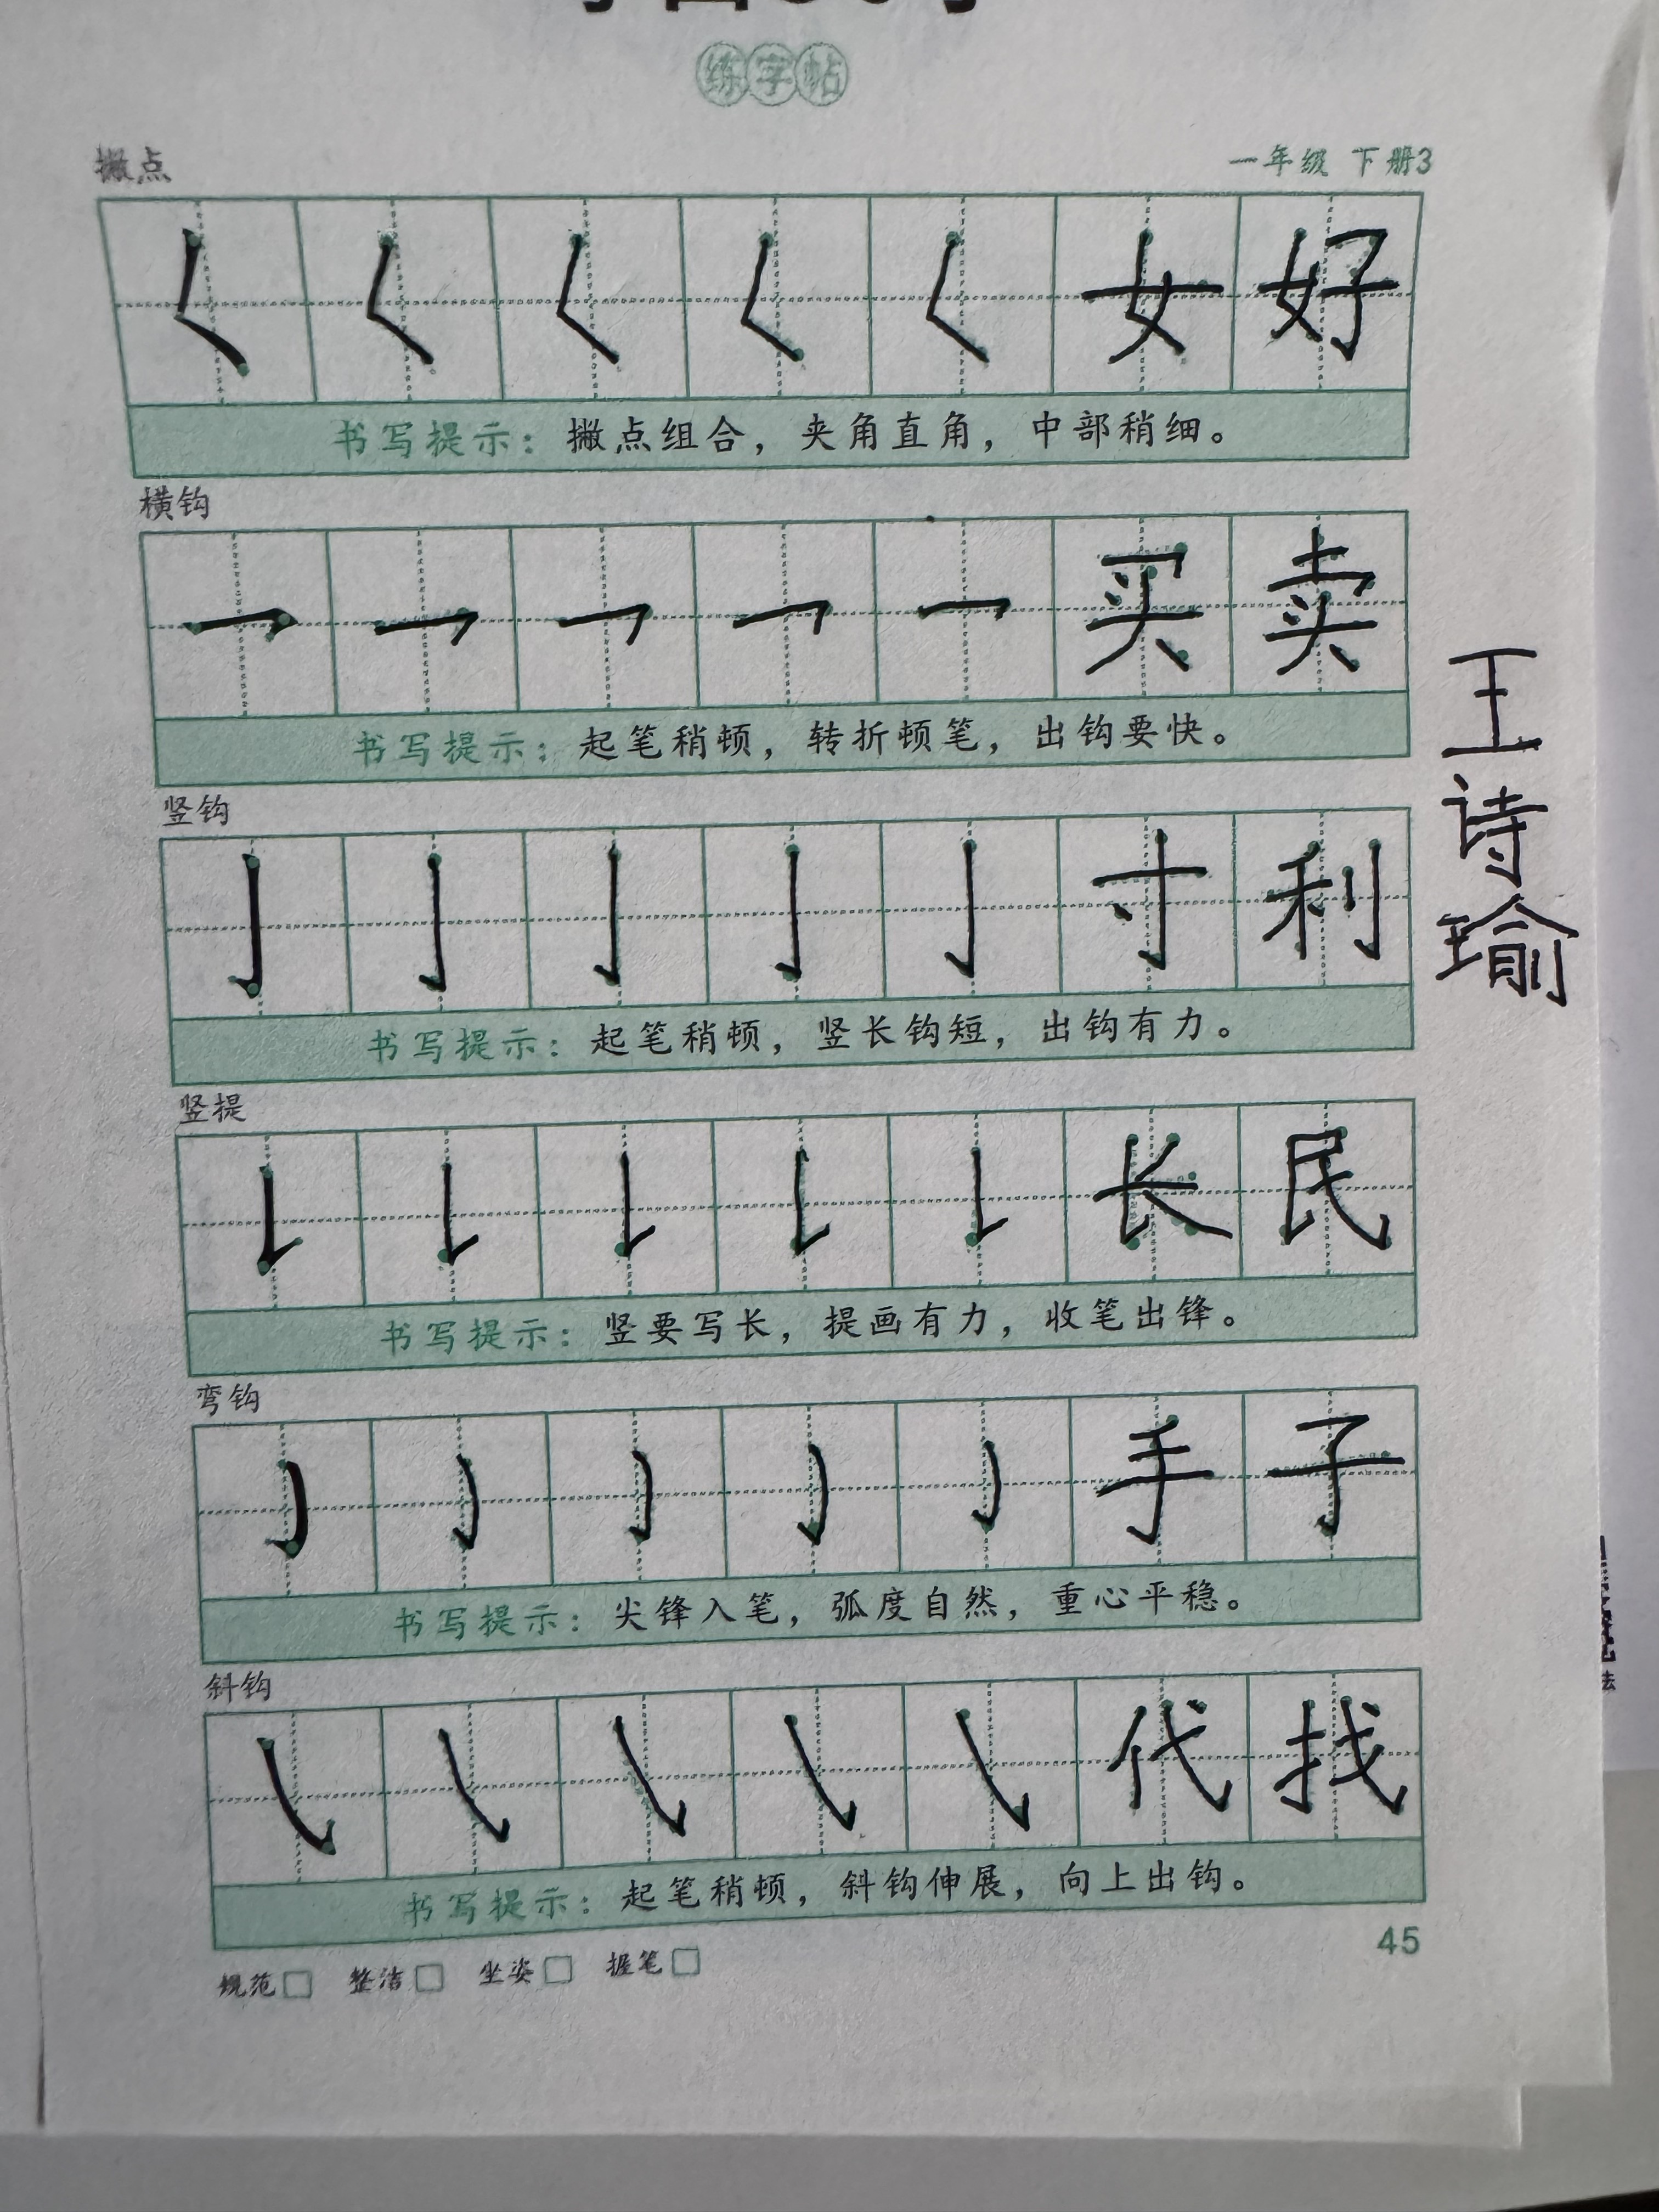 练字帖
撇点
一年级 下册3
𡿨 𡿨 𡿨 𡿨 𡿨 女 好
书写提示：撇点组合，夹角直角，中部稍细。
横钩
乛 乛 乛 乛 乛 买 卖
书写提示：起笔稍顿，转折顿笔，出钩要快。
竖钩
亅 亅 亅 亅 亅 寸 利
书写提示：起笔稍顿，竖长钩短，出钩有力。
竖提
𠄌 𠄌 𠄌 𠄌 𠄌 长 民
书写提示：竖要写长，提画有力，收笔出锋。
弯钩
㇁ ㇁ ㇁ ㇁ ㇁ 手 子
书写提示：尖锋入笔，弧度自然，重心平稳。
斜钩
㇂ ㇂ ㇂ ㇂ ㇂ 代 找
书写提示：起笔稍顿，斜钩伸展，向上出钩。
45
规范□ 整洁□ 坐姿□ 握笔□
王诗瑜
法